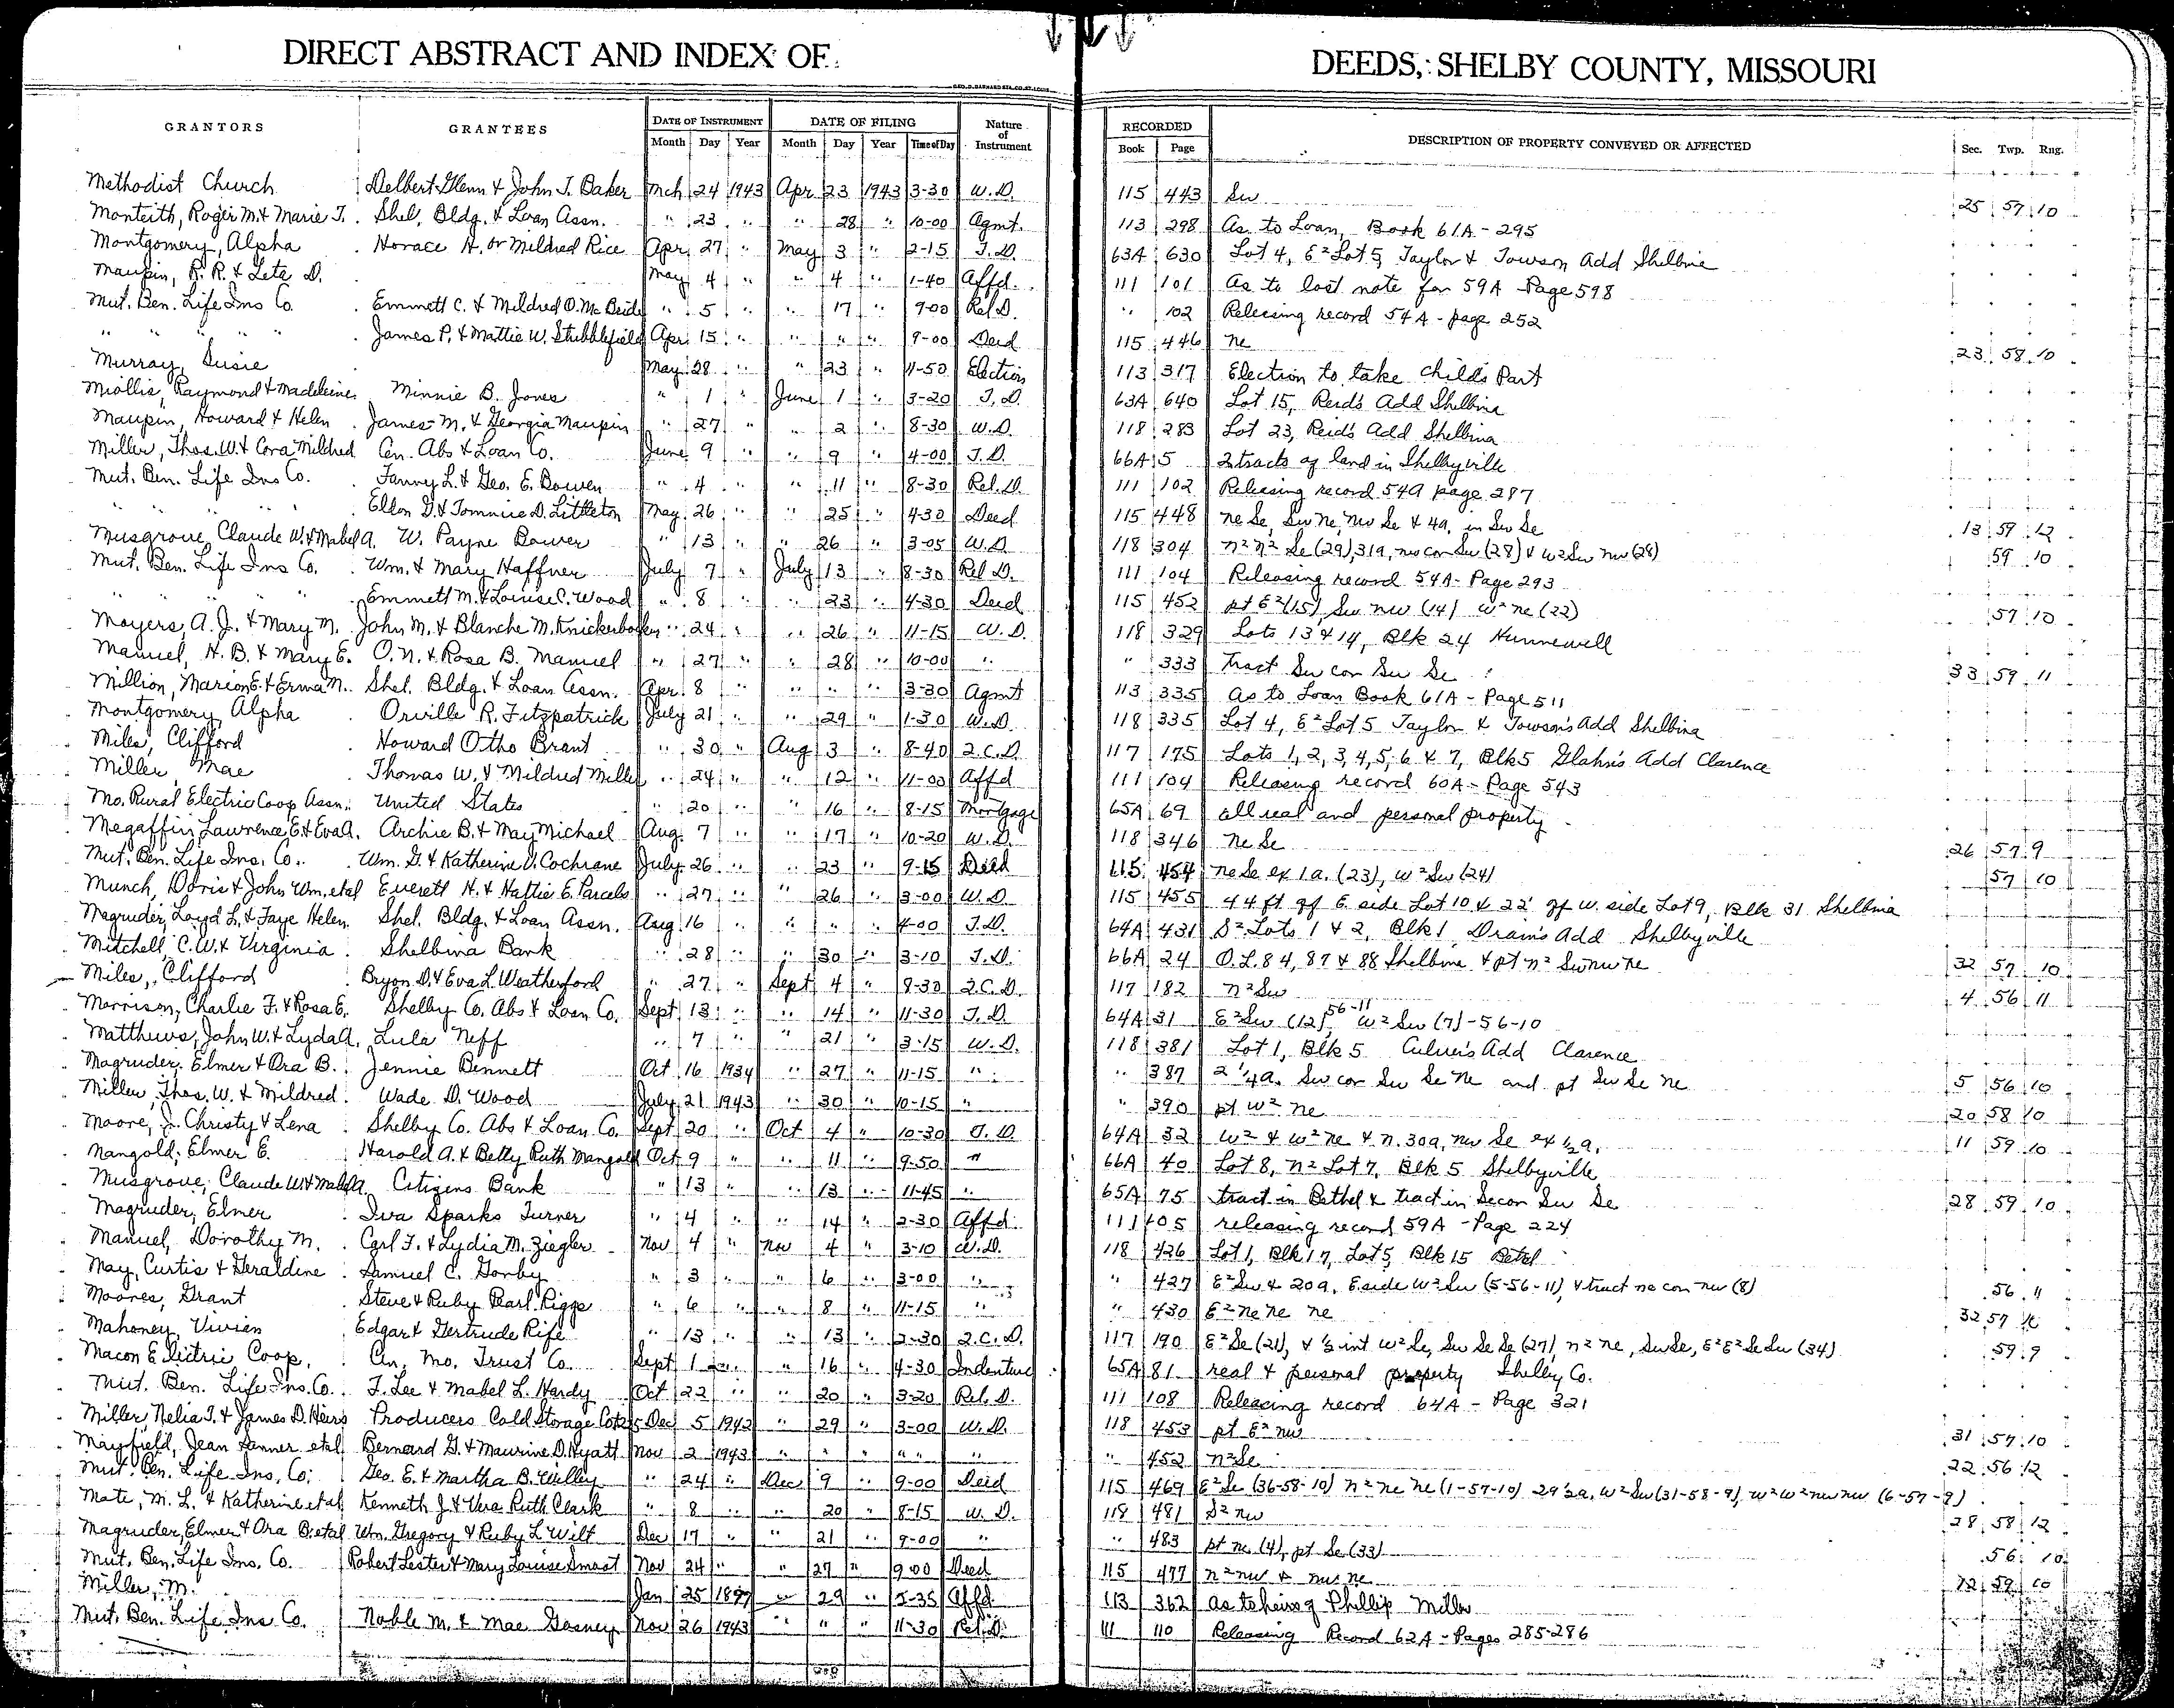 DIRECT ABSTRACT AND INDEX OF DEEDS, SHELBY COUNTY, MISSOURI
GRANTORS GRANTEES DATE OF INSTRUMENT DATE OF FILING Nature of Instrument RECORDED DESCRIPTION OF PROPERTY CONVEYED OR AFFECTED Sec. Twp. Rng.
Month Day Year Month Day Year Time of Day Book Page
Methodist Church Delbert Glenn & John T. Baker Mch 24 1943 Apr 23 1943 3-30 W.D. 115 443 Sw 25 57 10
Monteith, Roger M. & Marie T. Shel. Bldg. & Loan Assn. " 23 " " 28 " 10-00 Agmt. 113 298 As to Loan, Book 61A - 295
Montgomery, Alpha Horace H. or Mildred Rice Apr 27 " May 3 " 2-15 T.D. 63A 630 Lot 4, E² Lot 5, Taylor & Towson Add Shelbina
Maupin, R. R. & Leta D. May 4 " " 4 " 1-40 Affd. 111 101 As to lost note for 59A - Page 598
Mut. Ben. Life Ins Co. Emmett C. & Mildred O. McBride " 5 " " 17 " 9-00 Rel D. " 102 Releasing record 54A - page 252
" " " " " James P. & Mattie W. Stribblefield Apr 15 " " " " 9-00 Deed 115 446 ne 23 58 10
Murray, Susie May 28 " " 23 " 11-50 Election 113 317 Election to take Childs Part
Miollis, Raymond & Madeleine Minnie B. Jones " 1 " June 1 " 3-20 T.D. 63A 640 Lot 15, Reid's Add Shelbina
Maupin, Howard & Helen James M. & Georgia Maupin " 27 " " 2 " 8-30 W.D. 118 283 Lot 23, Reid's Add Shelbina
Miller, Thos. W. & Cora Mildred Cen. Abs & Loan Co. June 9 " " 9 " 4-00 T.D. 66A 5 2 tracts of land in Shelbyville
Mut. Ben. Life Ins Co. Fanny L. & Geo. E. Bowen " 4 " " 11 " 8-30 Rel. D. 111 102 Releasing record 54A page 287
" " " " Eldon G. & Tommie D. Littleton May 26 " " 25 " 4-30 Deed 115 448 ne Se, Sw ne, nw Se & 4a. in Sw Se 13 59 12
Musgrove, Claude W. & Mabel A. W. Payne Bower " 13 " " 26 " 3-05 W.D. 118 304 n² n² Se (29), 31a, nw cor Sw (28) & W² Sw nw (28) 59 10
Mut. Ben. Life Ins Co. Wm. & Mary Haffner July 7 " July 13 " 8-30 Rel D. 111 104 Releasing record 54A - Page 293
" " " " " Emmett M. & Louise C. Wood " 8 " " 23 " 4-30 Deed 115 452 pt E² (15), Sw nw (14) W² ne (22) 57 10
Moyers, A. J. & Mary M. John M. & Blanche M. Knickerbocker " 24 " " 26 " 11-15 W.D. 118 329 Lots 13 & 14, Blk 24 Hunnewell
Manuel, H. B. & Mary E. O. N. & Rosa B. Manuel " 27 " " 28 " 10-00 " " 333 Tract Sw cor Sw Se 33 59 11
Million, Marion E. & Erma N. Shel. Bldg. & Loan Assn. Apr. 8 " " " " 3-30 Agmt 113 335 as to Loan Book 61A - Page 511
Montgomery, Alpha Orville R. Fitzpatrick July 21 " " 29 " 1-30 W.D. 118 335 Lot 4, E² Lot 5 Taylor & Towson's Add Shelbina
Miles, Clifford Howard Otho Brant " 30 " Aug 3 " 8-40 Q.C.D. 117 175 Lots 1, 2, 3, 4, 5, 6 & 7, Blk 5 Glahn's Add Clarence
Miller, Mae Thomas W. & Mildred Miller " 24 " " 12 " 11-00 Affd 111 104 Releasing record 60A - Page 543
Mo. Rural Electric Coop Assn. United States " 20 " " 16 " 8-15 Mortgage 65A 69 all real and personal property
Megaffin, Lawrence E. & Eva A. Archie B. & May Michael Aug. 7 " " 17 " 10-20 W.D. 118 346 ne Se 26 57 9
Mut. Ben. Life Ins. Co. Wm. G. & Katherine V. Cochrane July 26 " " 23 " 9-15 Deed 115 454 ne Se ex 1a. (23), W² Sw (24) 57 10
Munch, Doris & John Wm. etal Everett H. & Hattie E. Parcels " 27 " " 26 " 3-00 W.D. 115 455 44 ft of E. side Lot 10 & 22' of W. side Lot 9, Blk 31 Shelbina
Magruder, Loyd L. & Faye Helen Shel. Bldg. & Loan Assn. Aug 16 " " " " 4-00 T.D. 64A 431 S² Lots 1 & 2, Blk 1 Drain's Add Shelbyville
Mitchell, C. W. & Virginia Shelbina Bank " 28 " " 30 " 3-10 T.D. 66A 24 O.L. 84, 87 & 88 Shelbina & pt n² Sw nw ne 32 57 10
Miles, Clifford Bryon D. & Eva L. Weatherford " 27 " Sept 4 " 8-30 Q.C.D. 117 182 n² Sw 4 56 11
Morrison, Charlie F. & Rosa E. Shelby Co. Abs & Loan Co. Sept 13 " " 14 " 11-30 T.D. 64A 31 E² Sw (12), 56-11 W² Sw (7) - 56-10
Matthews, John W. & Lyda A. Lula Neff " 7 " " 21 " 3-15 W.D. 118 381 Lot 1, Blk 5 Culver's Add Clarence
Magruder, Elmer & Ora B. Jennie Bennett Oct 16 1934 " 27 " 11-15 " " 387 2 1/4a. Sw cor Sw Se Ne and pt Sw Se ne 5 56 10
Miller, Thos. W. & Mildred Wade D. Wood July 21 1943 " 30 " 10-15 " " 390 pt W² ne 20 58 10
Moore, J. Christy & Lena Shelby Co. Abs & Loan Co. Sept 20 " Oct 4 " 10-30 T.D. 64A 32 W² & W² ne & n. 30a, nw Se ex 1/2 a. 11 59 10
Mangold, Elmer E. Harold A. & Betty Ruth Mangold Oct 9 " " 11 " 9-50 " 66A 40 Lot 8, n² Lot 7, Blk 5 Shelbyville
Musgrove, Claude W. & Mabel A. Citizens Bank " 13 " " 13 " 11-45 " 65A 75 tract in Bethel & tract in Se cor Sw Se 28 59 10
Magruder, Elmer Iva Sparks Turner " 4 " " 14 " 2-30 Affd. 111 105 releasing record 59A - Page 224
Manuel, Dorothy M. Carl F. & Lydia M. Ziegler Nov 4 " Nov 4 " 3-10 W.D. 118 426 Lot 1, Blk 17, Lot 5, Blk 15 Betel
May, Curtis & Geraldine Samuel C. Gorby " 3 " " 6 " 3-00 " " 427 E² Sw & 20a. E side W² Sw (5-56-11), & tract ne cor nw (8) 56 11
Moores, Grant Steve & Ruby Pearl Riggs " 6 " " 8 " 11-15 " " 430 E² ne ne ne 32 57
Mahoney, Vivian Edgar & Gertrude Rife " 13 " " 13 " 2-30 Q.C.D. 117 190 E² Se (21), & 1/3 int W² Se, Sw Se Se (27), n² ne, Sw Se, E² E² Se Sw (34) 59 9
Macon Electric Coop. Cen. Mo. Trust Co. Sept 1 " " 16 " 4-30 Indenture 65A 81 real & personal property Shelby Co.
Mut. Ben. Life Ins. Co. F. Lee & Mabel L. Hardy Oct 22 " " 20 " 3-20 Rel. D. 111 108 Releasing record 64A - Page 321
Miller, Nelia T. & James D. Heirs Producers Cold Storage Co Dec 5 1942 " 29 " 3-00 W.D. 118 453 pt E² nw 31 57 10
Mayfield, Jean Sanner etal Bernard G. & Maurine D. Hyatt Nov 2 1943 " " " " " " 452 n² Se 22 56 12
Mut. Ben. Life Ins. Co. Geo. E. & Martha B. Willey " 24 " Dec 9 " 9-00 Deed 115 469 E² Se (36-58-10) n² ne ne (1-57-10) 29 1/2a, W² Sw (31-58-9), W² W² nw nw (6-57-9)
Mate, M. L. & Katherine etal Kenneth J. & Vera Ruth Clark " 8 " " 20 " 8-15 W.D. 118 481 S² nw 28 58 12
Magruder, Elmer & Ora B. etal Wm. Gregory & Ruby L. Wilt Dec 17 " " 21 " 9-00 " " 483 pt ne (4), pt Se (33) 56 10
Mut. Ben. Life Ins. Co. Robert Lester & Mary Louise Smoot Nov 24 " " 27 " 9-00 Deed 115 477 n² nw & nw ne 12 59 10
Miller, M. Jan 25 1897 " 29 " 5-35 Affd. 113 362 as to heirs of Phillip Miller
Mut. Ben. Life Ins Co. Noble M. & Mae Gosney Nov 26 1943 " " " 11-30 Rel. D. 111 110 Releasing Record 62A - Pages 285-286